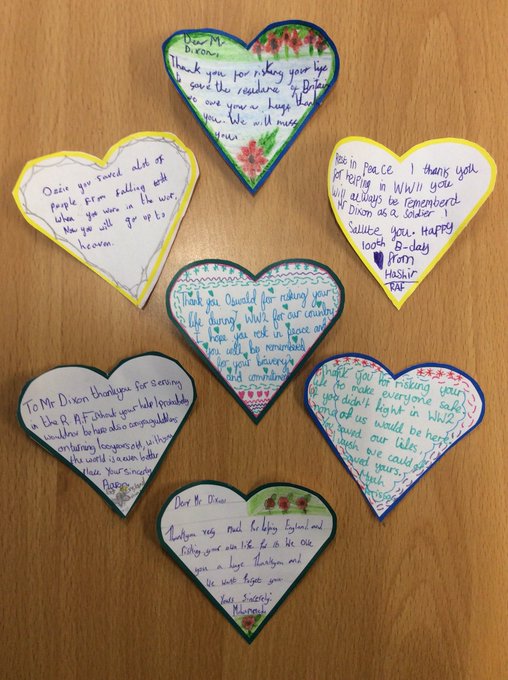 Dear Mr
Dixon,
Thank you for risking your life
to save the residance of Britain
we owe you a huge thank
you. We will miss
you.
Ossie you saved alot of
people from falling
when you were in the war,
Now you will go up to
heaven.
Rest in Peace I thank you
for helping in WWII you
will always be rememberd
Mr Dixon as a soldier I
Salute you. HAPPY
100th B-day
from
Hashir
RAF
Thank you Oswald for risking your
life during WW2 for our country
I hope you rest in peace and
you will be remembered
for your bravery
and commitment
To Mr Dixon thankyou for serving
in the R.A.F. Without your help I probably
wouldn't be here also congragulations
on turning 100 years old, with you
the world is a even better
place Yours Sincerly
Thank you for risking your
life to make everyone safe
if you didn't fight in WW2
none of us would be here
You saved our lifes
I wish we could
saved yours.
Dear Mr Dixon
Thankyou very Much for helping England and
risking your own life for it. We Owe
you a huge Thankyou and
We wont forget you.
Yours Sincerely